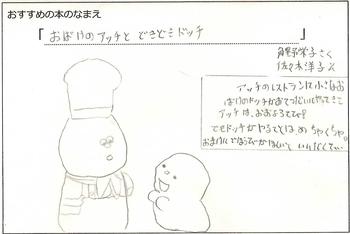 おすすめの本のなまえ
「おばけのアッチと どきどきドッチ」
角野栄子さく
佐々木洋子え
アッチのレストランに小さなお
ばけのドッチがおてつだいにやってきて
アッチは、おおよろこび?
でもドッチがやることは、めちゃくちゃ。